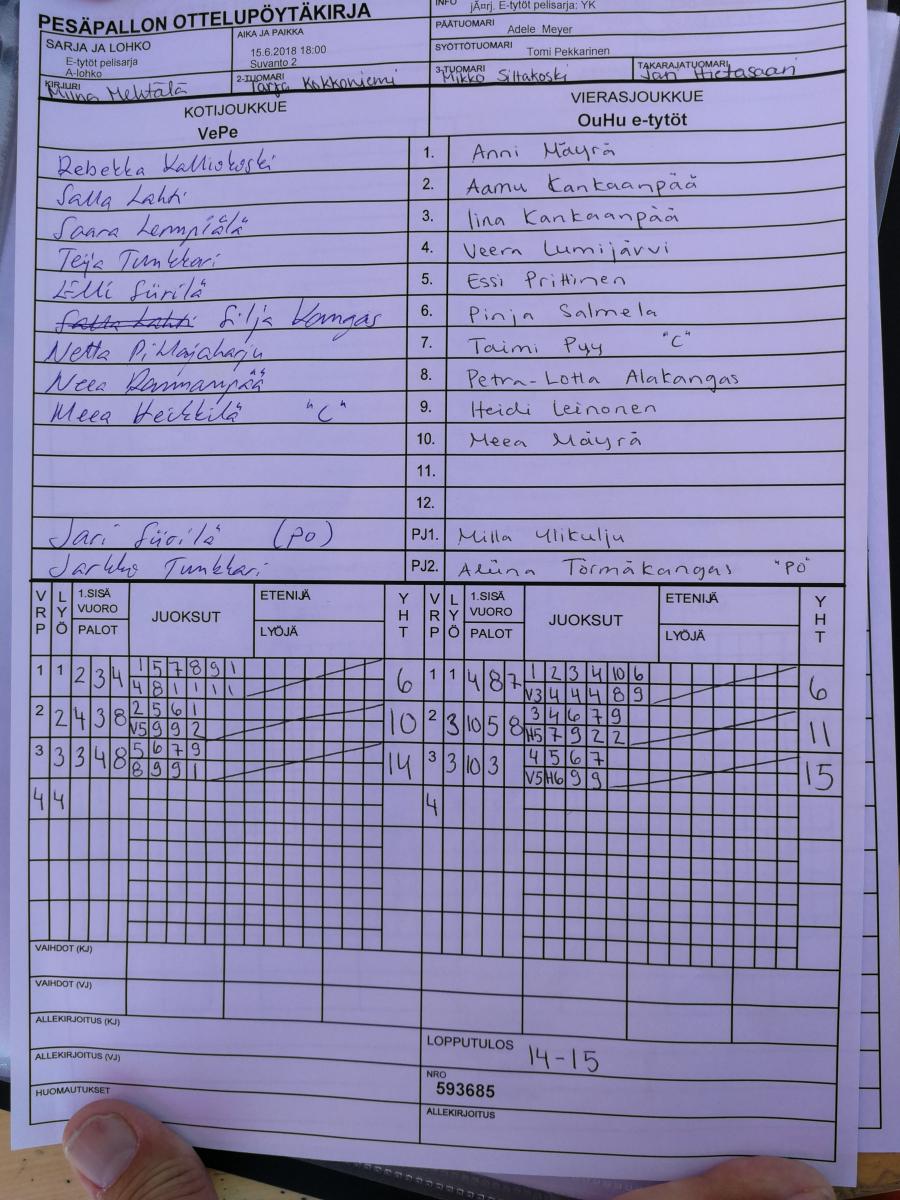 PESÄPALLON OTTELUPÖYTÄKIRJA
INFO jÃ¤rj. E-tytöt pelisarja; YK
PÄÄTUOMARI Adele Meyer
SARJA JA LOHKO
E-tytöt pelisarja
A-lohko
AIKA JA PAIKKA
15.6.2018 18:00
Suvanto 2
SYÖTTÖTUOMARI Tomi Pekkarinen
KIRJURI Miina Mehtälä
2-TUOMARI Tarja Kokkoniemi
3-TUOMARI Mikko Siltakoski
TAKARAJATUOMARI Jari Hietasaari
KOTIJOUKKUE
VePe
VIERASJOUKKUE
OuHu e-tytöt
Rebekka Kalliokoski 1. Anni Mäyrä
Salla Lahti 2. Aamu Kankaanpää
Saara Lempiälä 3. Iina Kankaanpää
Teija Tunkkari 4. Veera Lumijärvi
Elli Siirilä 5. Essi Prittinen
Salla Lahti Silja Kangas 6. Pinja Salmela
Netta Pihlajaharju 7. Taimi Pyy "C"
Neea Rannanpää 8. Petra-Lotta Alakangas
Meea Heikkilä "C" 9. Heidi Leinonen
10. Meea Mäyrä
11.
12.
Jari Siirilä (PO) PJ1. Milla Ylikulju
Jarkko Tunkkari PJ2. Aliina Törmäkangas "PÖ"
VRP LYÖ 1.SISÄ VUORO PALOT JUOKSUT ETENIJÄ LYÖJÄ YHT VRP LYÖ 1.SISÄ VUORO PALOT JUOKSUT ETENIJÄ LYÖJÄ YHT
1 1 2 3 4 1 5 7 8 9 1 6 1 1 4 8 7 1 2 3 4 10 6 6
4 8 1 1 1 1 V3 4 4 4 8 9
2 2 4 3 8 2 5 6 1 10 2 3 10 5 8 3 4 6 7 9 11
V5 9 9 2 H5 7 9 2 2
3 3 3 4 8 5 6 7 9 14 3 3 10 3 4 5 6 7 15
8 9 9 1 V5 H6 9 9
4 4 4
VAIHDOT (KJ)
VAIHDOT (VJ)
ALLEKIRJOITUS (KJ)
LOPPUTULOS 14-15
ALLEKIRJOITUS (VJ)
NRO
593685
HUOMAUTUKSET
ALLEKIRJOITUS